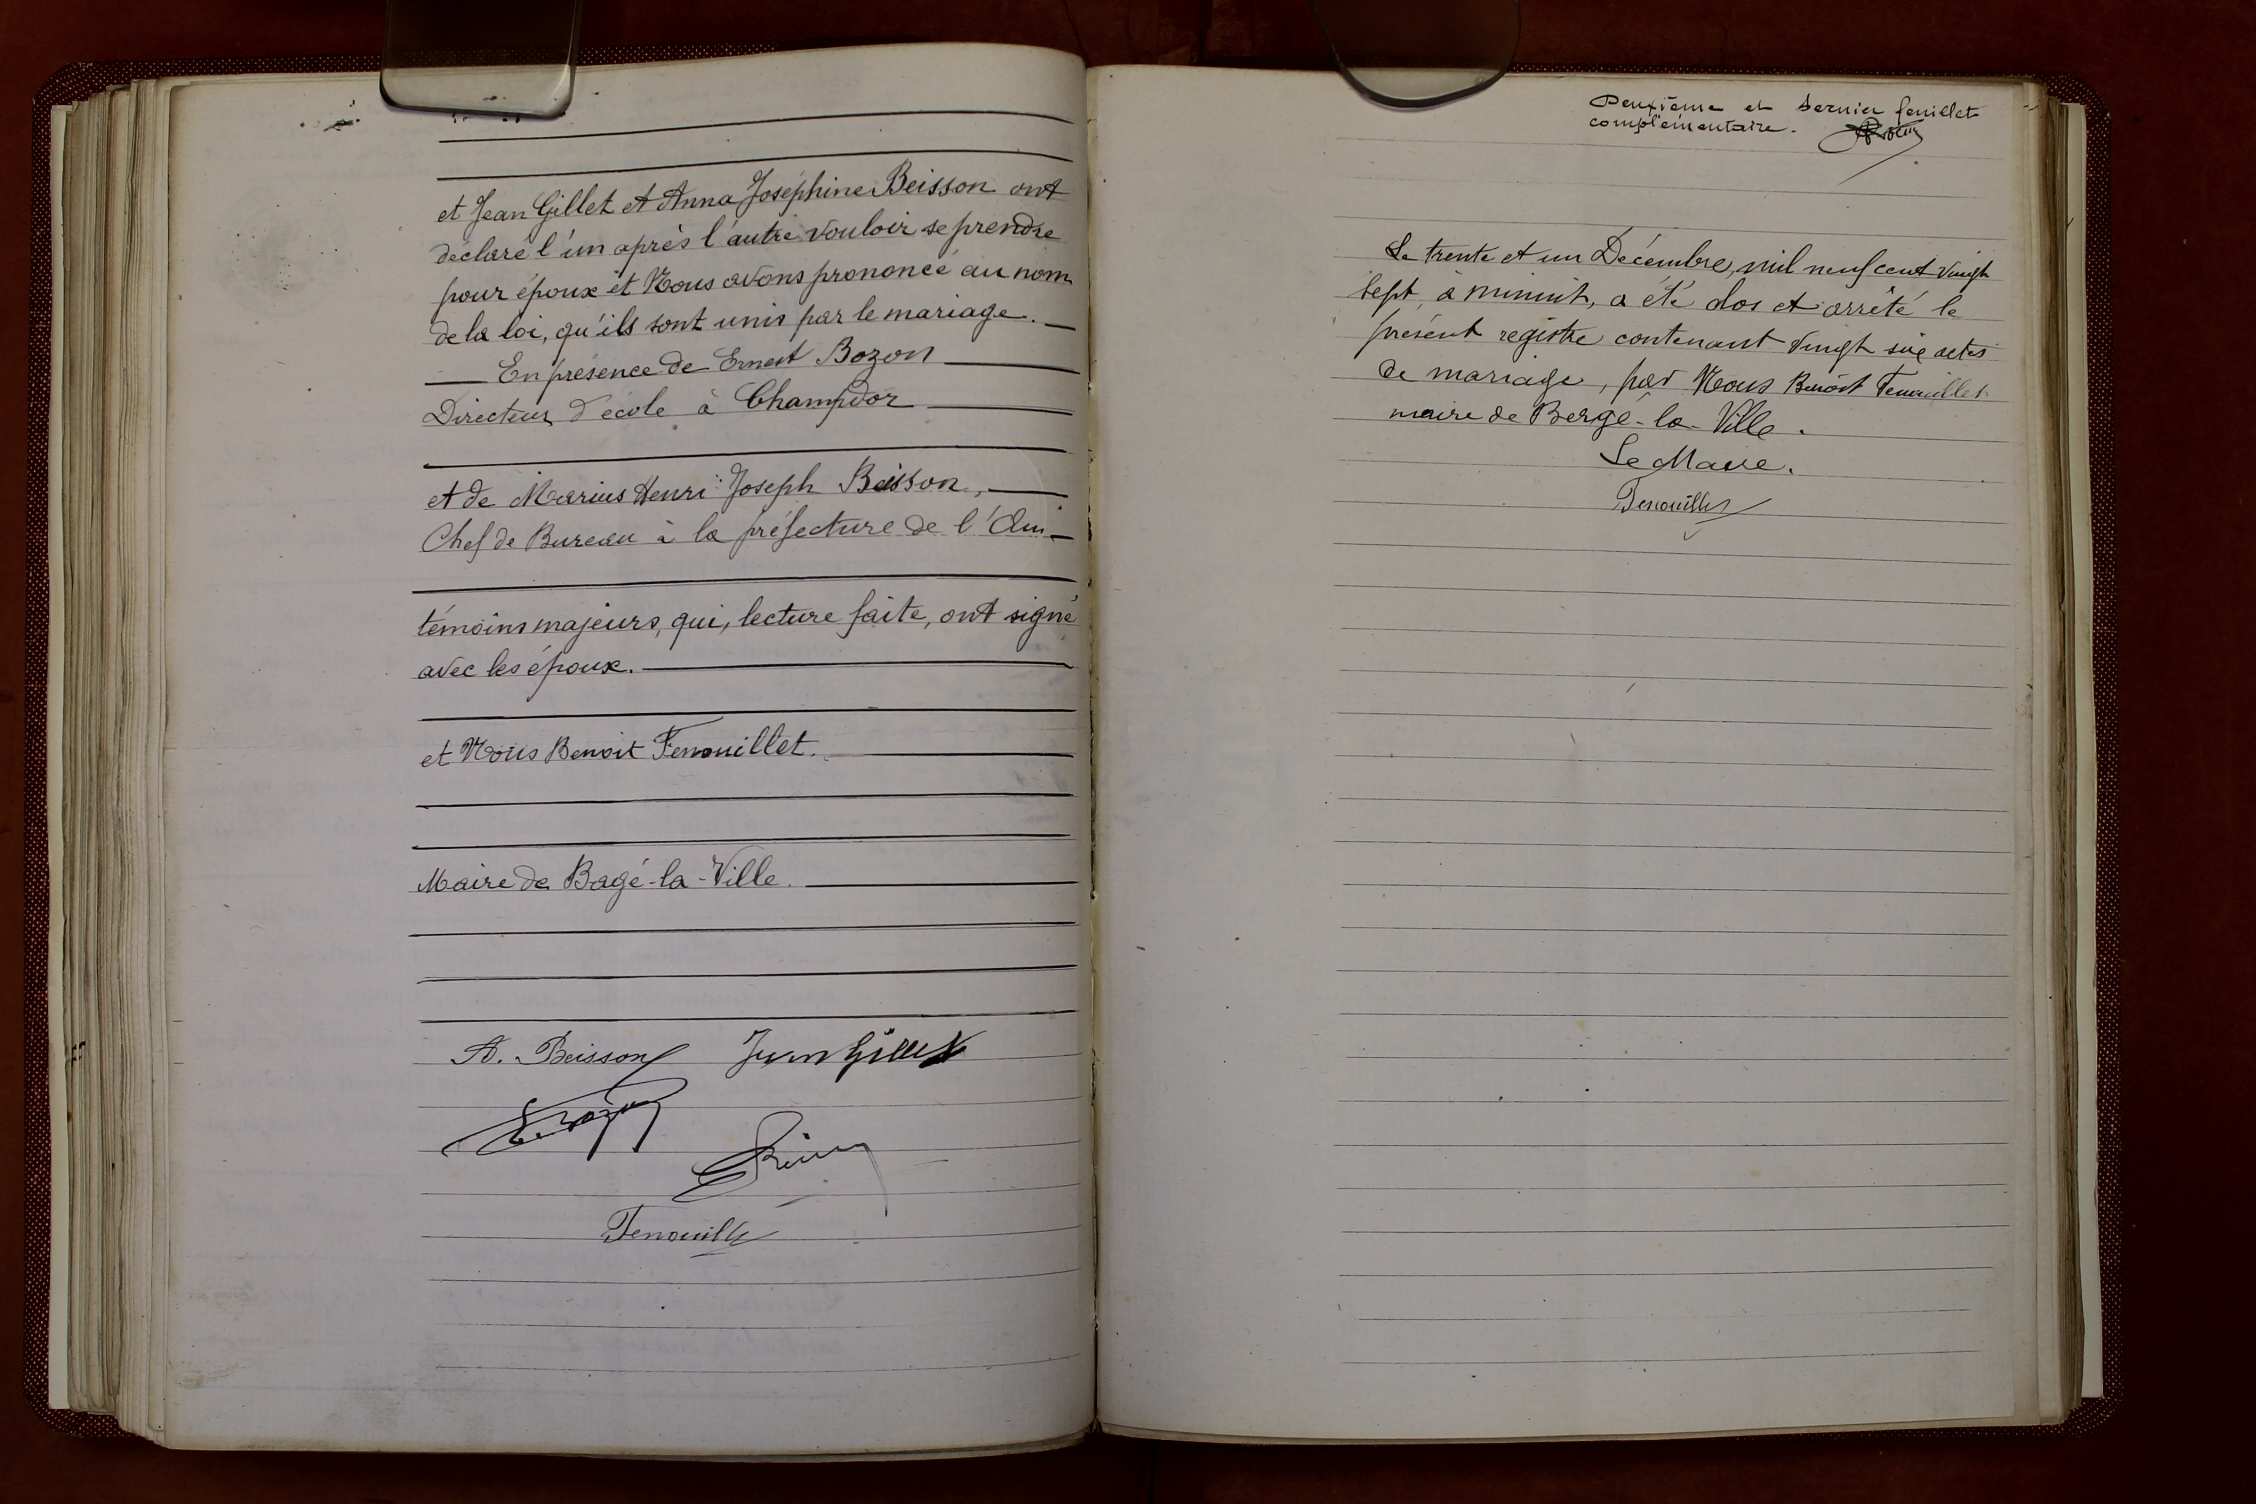 et Jean Gillet et Anna Joséphine Beisson ont
déclaré l'un après l'autre vouloir se prendre
pour époux et Nous avons prononcé au nom
de la loi, qu'ils sont unis par le mariage.
En présence de Ernest Bozon
Directeur d'école à Champdor
et de Marius Henri Joseph Beisson,
Chef de Bureau à la préfecture de l'Ain
témoins majeurs, qui, lecture faite, ont signé
avec les époux.
et Nous Benoit Fenouillet.
Maire de Bagé-la-Ville.
A. Beisson Jean Gillet
E. Bozon
Fenouillet
Deuxième et dernier feuillet
complémentaire.
Le trente et un Décembre, mil neuf cent vingt
sept, à minuit, a été clos et arrêté le
présent registre contenant vingt six actes
de mariage, par Nous Benoit Fenouillet
maire de Bergé-la-Ville.
Le Maire.
Fenouillet